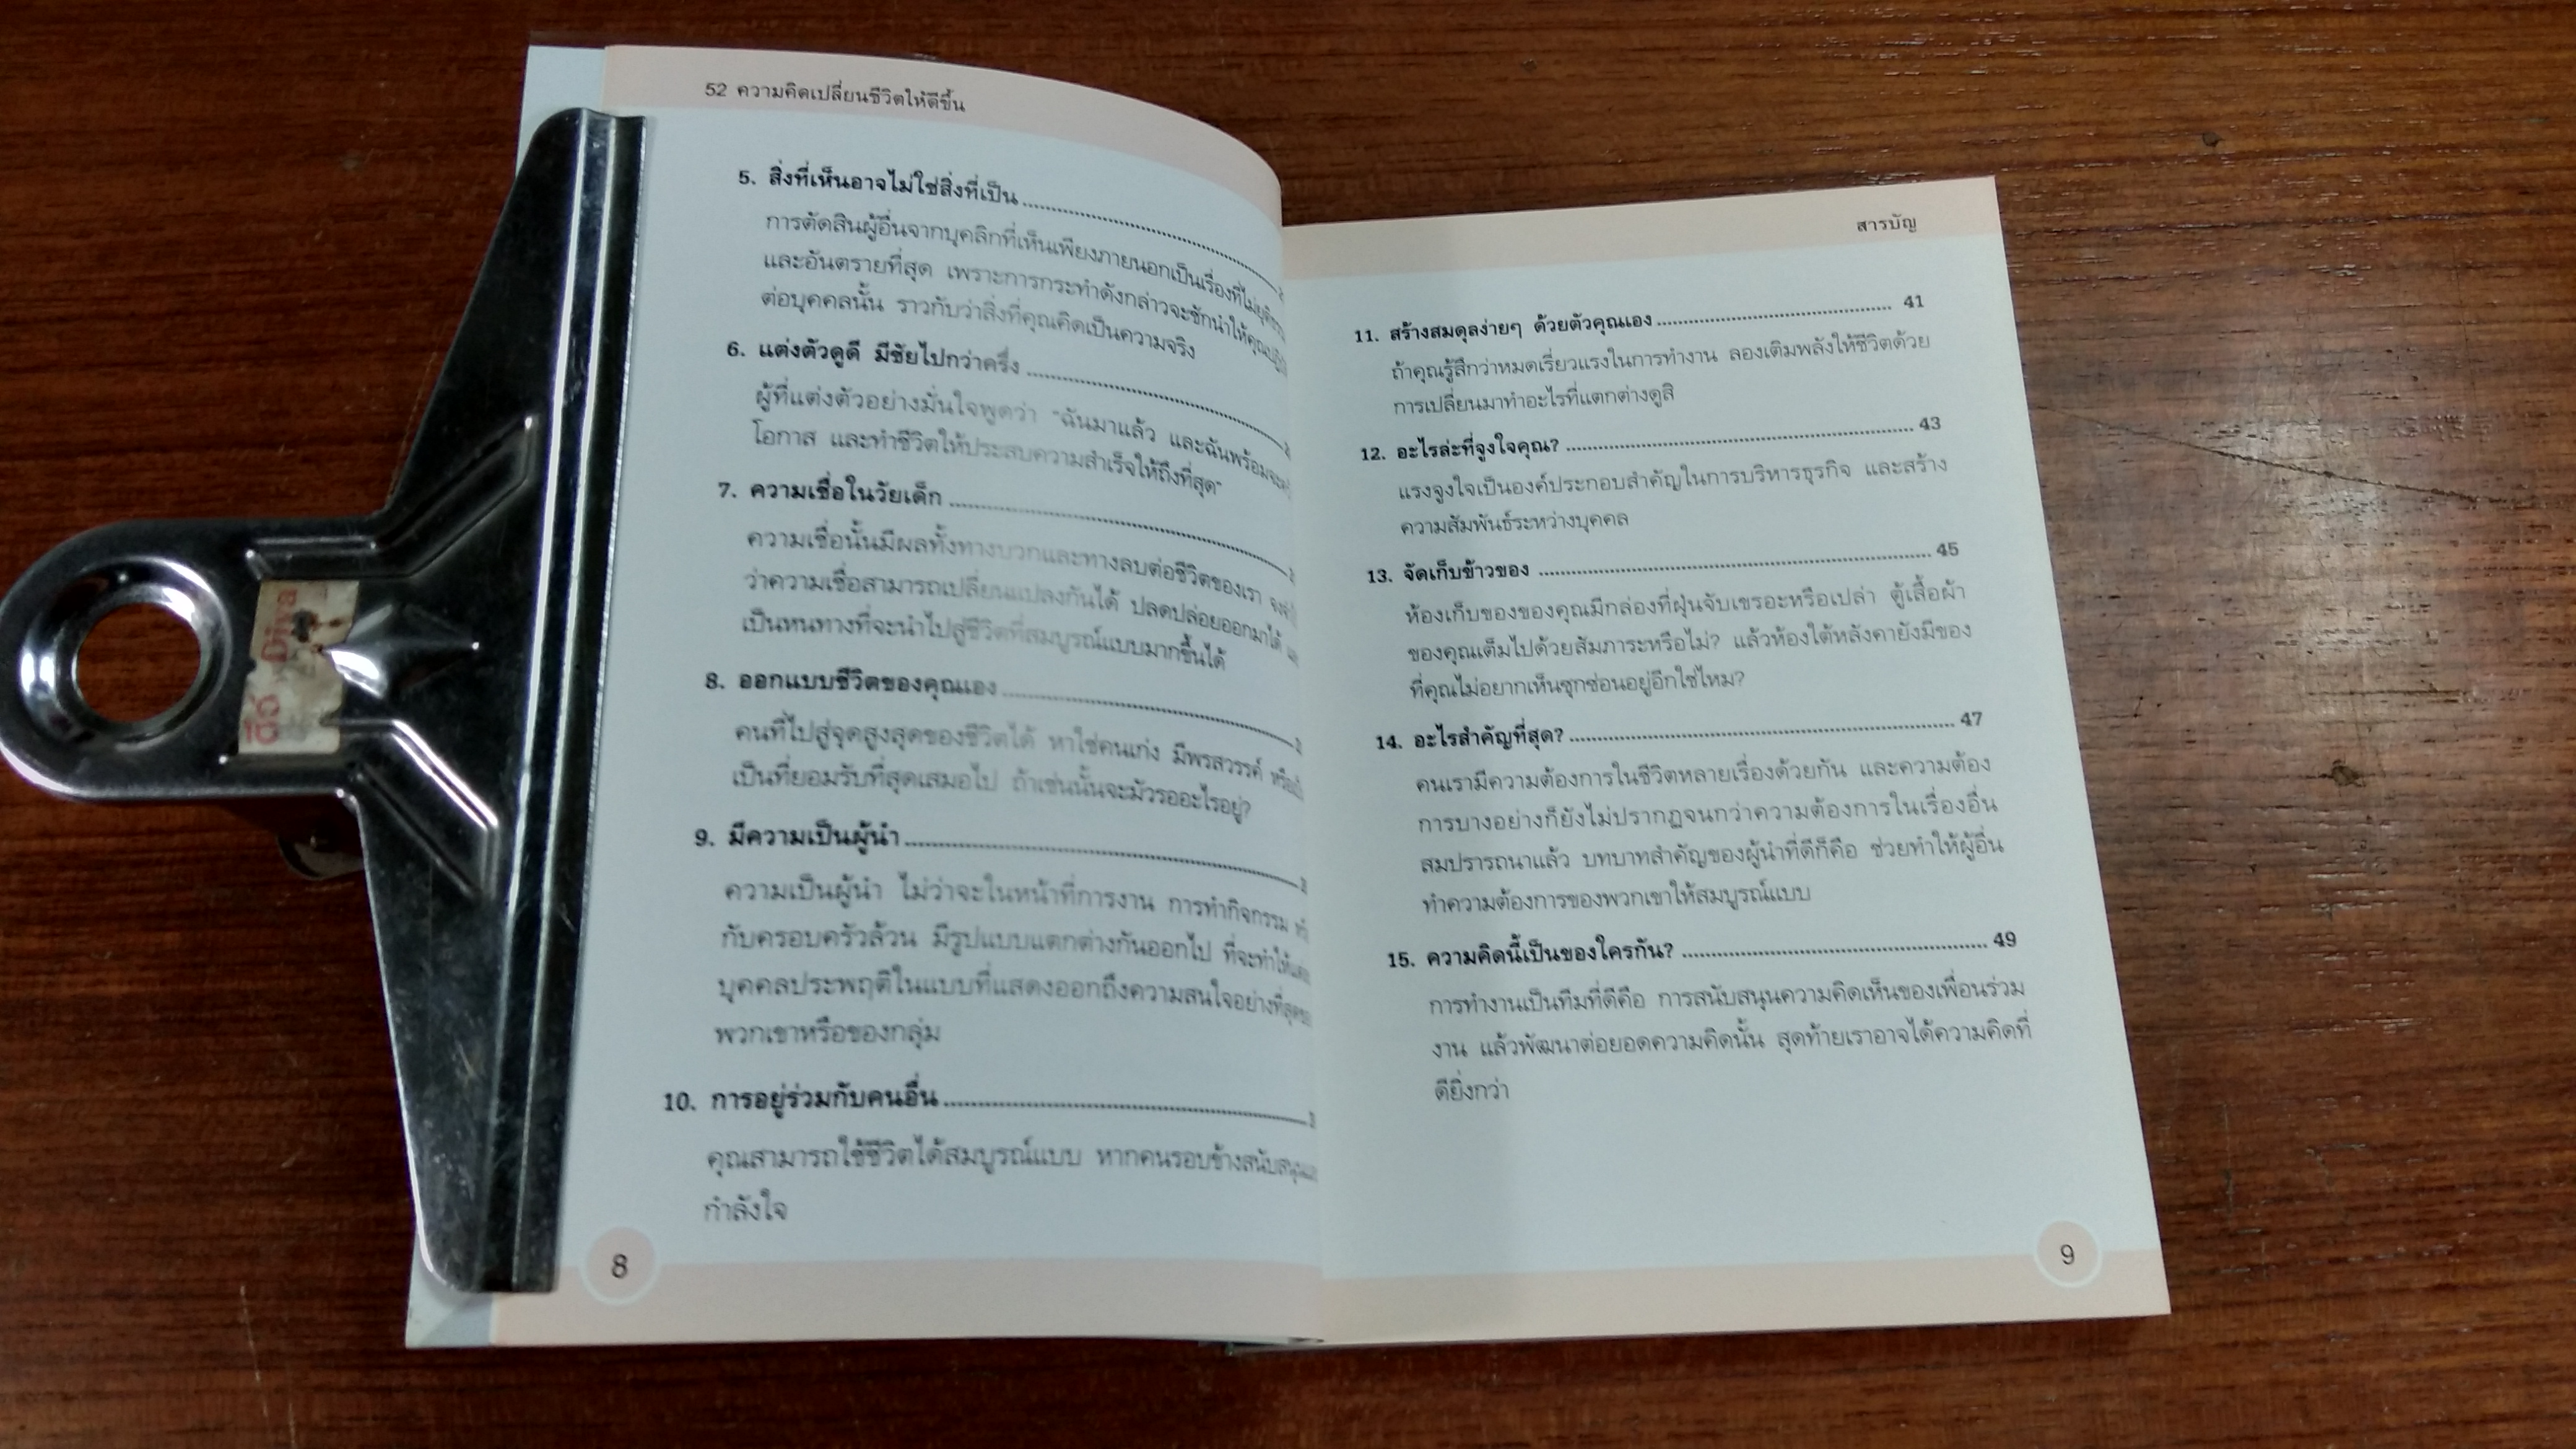 52 ความคิดเปลี่ยนชีวิตให้ดีขึ้น
5. สิ่งที่เห็นอาจไม่ใช่สิ่งที่เป็น
การตัดสินผู้อื่นจากบุคลิกที่เห็นเพียงภายนอกเป็นเรื่องที่ไม่
และอันตรายที่สุด เพราะการกระทำดังกล่าวจะชักนำให้คุณ
ต่อบุคคลนั้น ราวกับว่าสิ่งที่คุณคิดเป็นความจริง
6. แต่งตัวดูดี มีชัยไปกว่าครึ่ง
ผู้ที่แต่งตัวอย่างมั่นใจพูดว่า "ฉันมาแล้ว และฉันพร้อม
โอกาส และทำชีวิตให้ประสบความสำเร็จให้ถึงที่สุด"
7. ความเชื่อในวัยเด็ก
ความเชื่อนั้นมีผลทั้งทางบวกและทางลบต่อชีวิตของเรา
ว่าความเชื่อสามารถเปลี่ยนแปลงกันได้ ปลดปล่อยออกมาได้
เป็นหนทางที่จะนำไปสู่ชีวิตที่สมบูรณ์แบบมากขึ้นได้
8. ออกแบบชีวิตของคุณเอง
คนที่ไปสู่จุดสูงสุดของชีวิตได้ หาใช่คนเก่ง มีพรสวรรค์
เป็นที่ยอมรับที่สุดเสมอไป ถ้าเช่นนั้นจะมัวรออะไรอยู่?
9. มีความเป็นผู้นำ
ความเป็นผู้นำ ไม่ว่าจะในหน้าที่การงาน การทำกิจกรรม
กับครอบครัวล้วน มีรูปแบบแตกต่างกันออกไป ที่จะทำให้
บุคคลประพฤติในแบบที่แสดงออกถึงความสนใจอย่างที่สุด
พวกเขาหรือของกลุ่ม
10. การอยู่ร่วมกับคนอื่น
คุณสามารถใช้ชีวิตได้สมบูรณ์แบบ หากคนรอบข้างสนับสนุน
กำลังใจ
8
สารบัญ
11. สร้างสมดุลง่ายๆ ด้วยตัวคุณเอง ........ 41
ถ้าคุณรู้สึกว่าหมดเรี่ยวแรงในการทำงาน ลองเติมพลังให้ชีวิตด้วย
การเปลี่ยนมาทำอะไรที่แตกต่างดูสิ
12. อะไรล่ะที่จูงใจคุณ? ........ 43
แรงจูงใจเป็นองค์ประกอบสำคัญในการบริหารธุรกิจ และสร้าง
ความสัมพันธ์ระหว่างบุคคล
13. จัดเก็บข้าวของ ........ 45
ห้องเก็บของของคุณมีกล่องที่ฝุ่นจับเขรอะหรือเปล่า ตู้เสื้อผ้า
ของคุณเต็มไปด้วยสัมภาระหรือไม่? แล้วห้องใต้หลังคายังมีของ
ที่คุณไม่อยากเห็นซุกซ่อนอยู่อีกใช่ไหม?
14. อะไรสำคัญที่สุด? ........ 47
คนเรามีความต้องการในชีวิตหลายเรื่องด้วยกัน และความต้อง
การบางอย่างก็ยังไม่ปรากฏจนกว่าความต้องการในเรื่องอื่น
สมปรารถนาแล้ว บทบาทสำคัญของผู้นำที่ดีก็คือ ช่วยทำให้ผู้อื่น
ทำความต้องการของพวกเขาให้สมบูรณ์แบบ
15. ความคิดนี้เป็นของใครกัน? ........ 49
การทำงานเป็นทีมที่ดีคือ การสนับสนุนความคิดเห็นของเพื่อนร่วม
งาน แล้วพัฒนาต่อยอดความคิดนั้น สุดท้ายเราอาจได้ความคิดที่
ดียิ่งกว่า
9